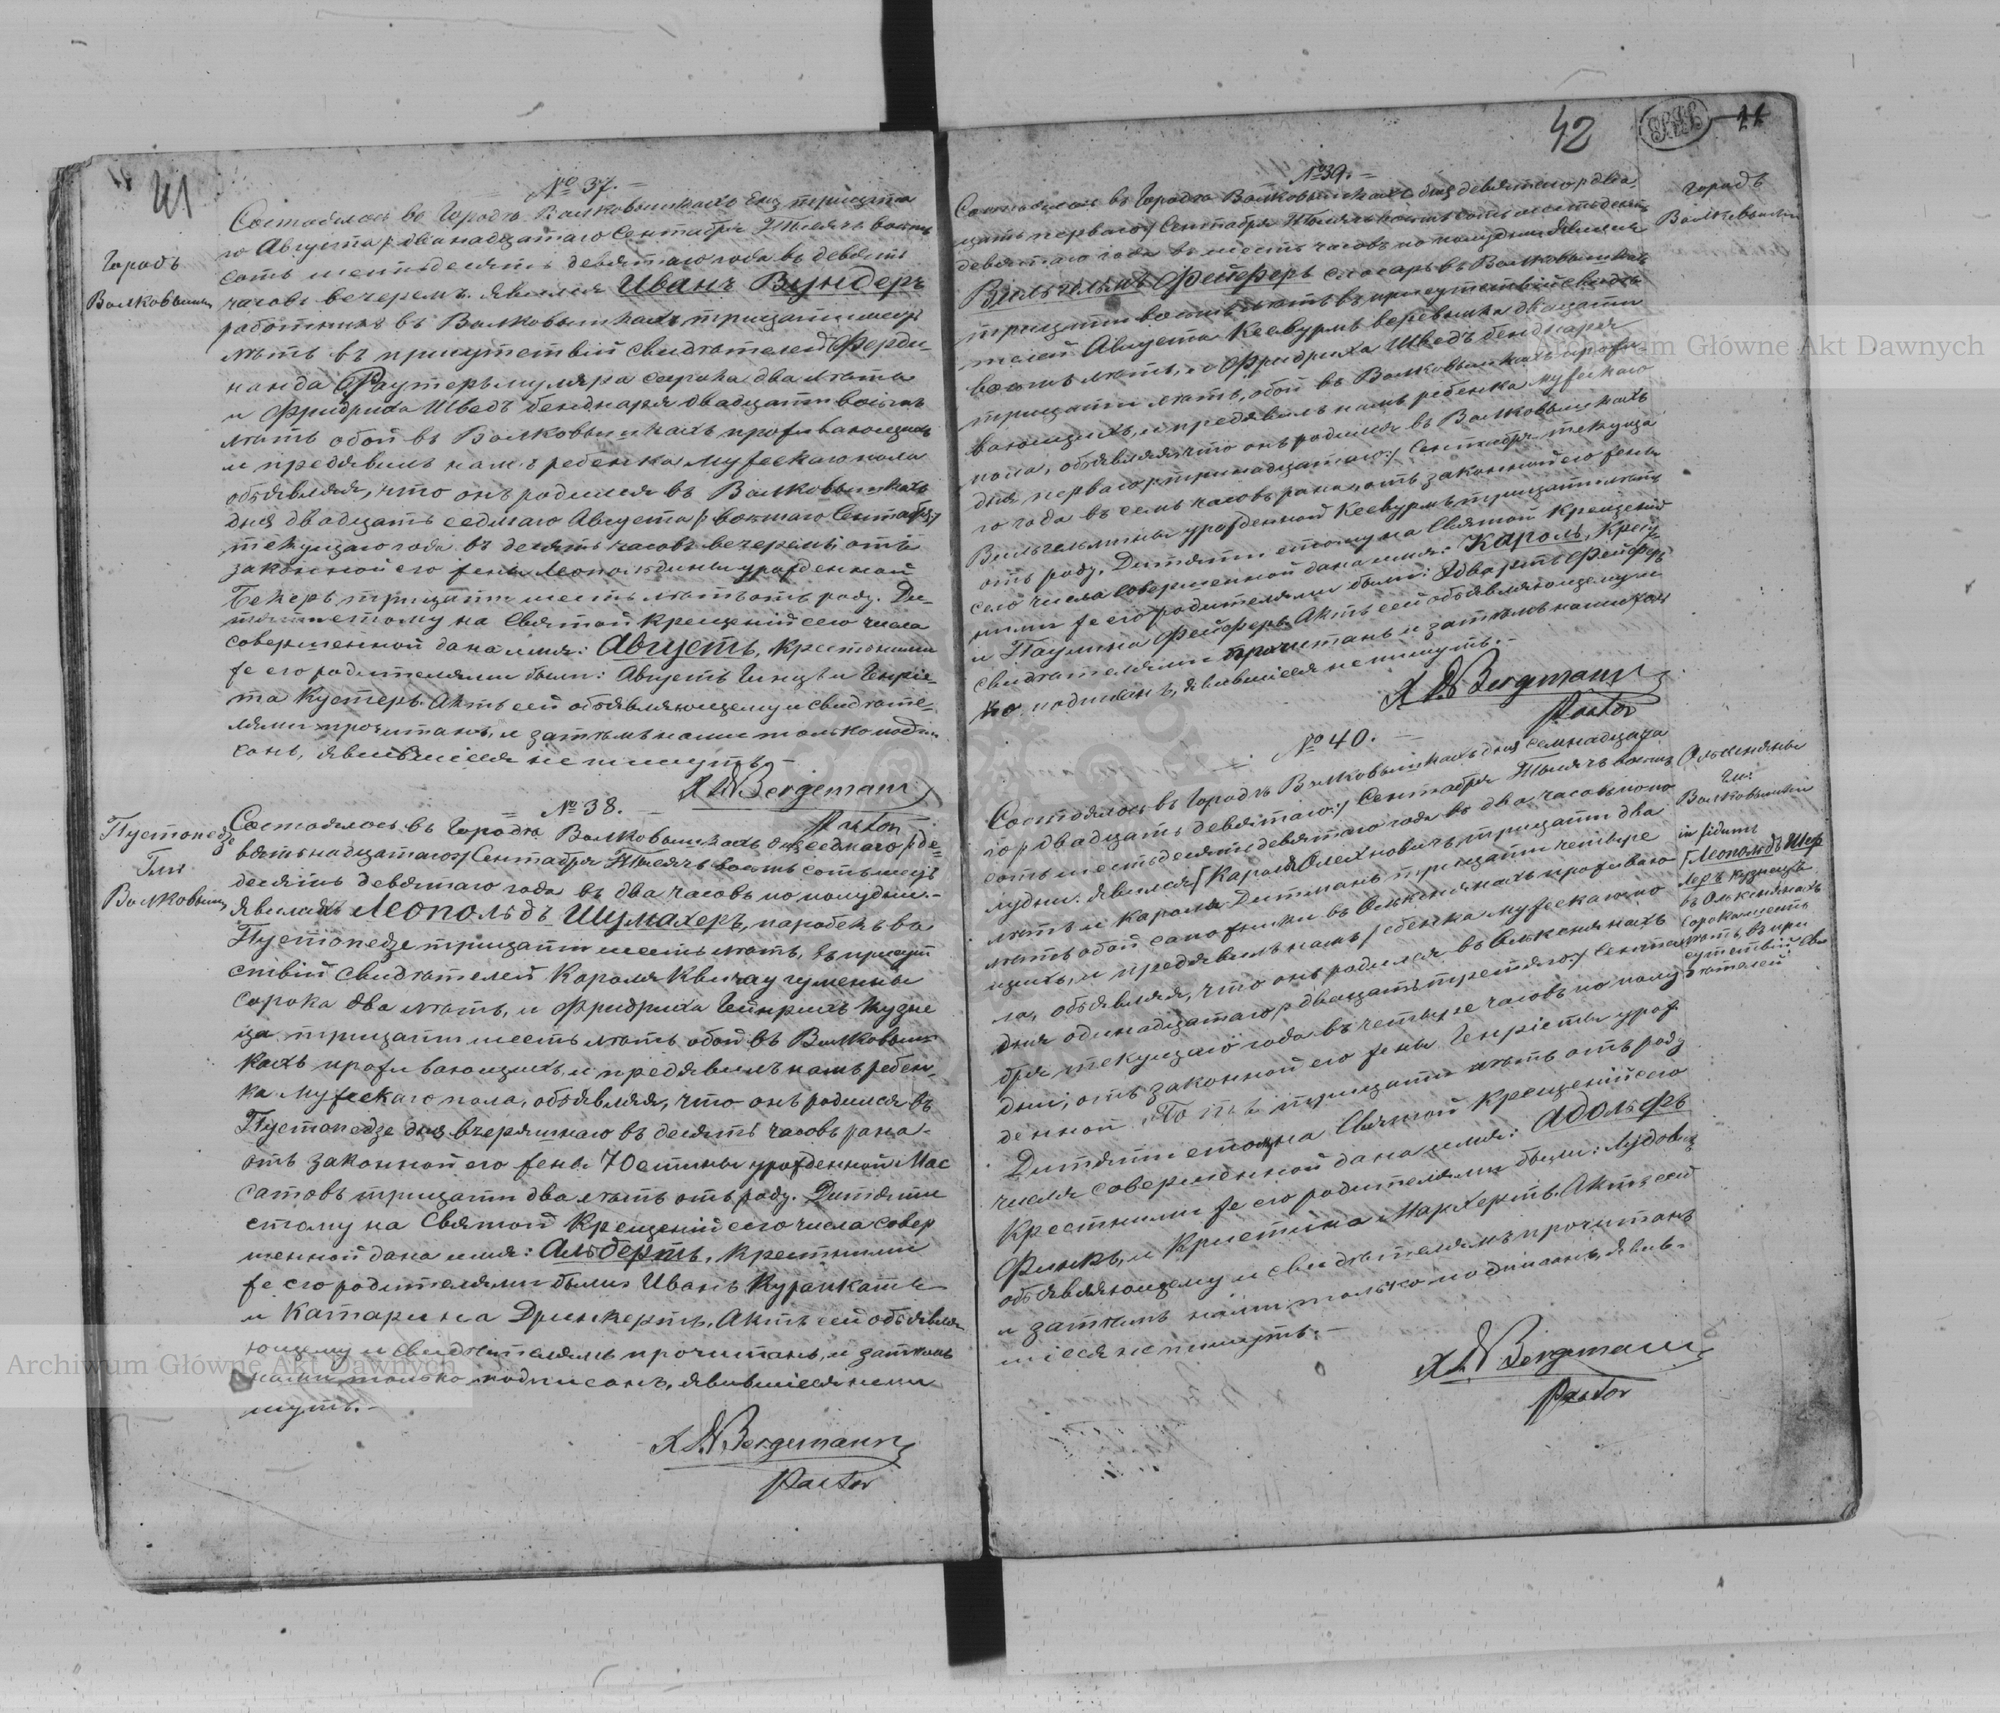 41
№ 37.
Городъ
Волковышки
Состоялось въ Городѣ Волковышкахъ дня тридцата
го Августа / двѣнадцатаго Сентября Тысяча восемь
сотъ шестьдесятъ девятаго года въ девять
часовъ вечеромъ. Явился Иванъ Вундеръ
работникъ въ Волковышкахъ, тридцати шесть
лѣтъ въ присутствіи свидѣтелей Ферди-
нанда Раутеръ муляра сорока два лѣтъ
и Фридриха Шведъ беднаря двадцати восемь
лѣтъ обой въ Волковышкахъ проживающихъ
и предявилъ намъ ребенка мужескаго пола
объявляя, что онъ родился въ Волковышкахъ
дня двадцать седмаго Августа / восмаго Сентября /
текущаго года въ десять часовъ вечеромъ, отъ
законной его жены Леопольдины урожденной
Бекеръ, тридцати шесть лѣтъ отъ роду. Ди-
тяти етому на Святой Крещеній сего числа
совершенной дана имя: Августъ, Крестными
же его родителями были: Августъ Гинцъ и Генріе-
та Кустеръ. Актъ сей объявляющему и свидѣте-
лями прочитанъ, и затѣмъ нами только подпи-
санъ, явившіеся не пишутъ.
Bergemann
Pastor
№ 38.
Пустопедзе
Гм:
Волковышки
Состоялось въ Городѣ Волковышкахъ дня седмаго / де-
вятьнадцатаго / Сентября Тысяча восемь сотъ шесть
десять девятаго года въ два часовъ по полудни.-
Явился Леопольдъ Шумахеръ, паробекъ въ
Пустопедзе тридцати шесть лѣтъ, въ присут
ствій свидѣтелей Кароля Квичау гуменны
сорока два лѣтъ, и Фридриха Гейнрихъ кузне
ца тридцати шесть лѣтъ обой въ Волковыш-
кахъ проживающихъ, и предявилъ намъ ребен-
ка мужескаго пола, объявляя, что онъ родился въ
Пустопедзе дня вчеряшнаго въ десять часовъ рана-
отъ законной его жены Юстины урожденной Мас
сатовъ тридцати два лѣтъ отъ роду. Дитяти
етому на Святой Крещеній сего числа совер
шенной дана имя: Альбертъ, Крестными
же его родителями были Иванъ Курапкатъ
и Катарина Дрипкертъ. Актъ сей объявля-
ющему и свидѣтелямъ прочитанъ, и затѣмъ
нами только подписанъ, явившіеся не пи
шутъ.-
Bergemann
Pastor
42
№ 39.
Городъ
Волковышки
Состоялось въ Городѣ Волковышкахъ дня девятаго / двад-
цать перваго / Сентября Тысяча восемь сотъ шестьдесятъ
девятаго года въ шесть часовъ по полудни. Явился
Вильгельмъ Фейферъ слосарь въ Волковышкахъ
тридцати восемь лѣтъ въ присутствій свидѣ-
телей Августа Кеевурмъ веровника двадцати
восемь лѣтъ, и Фридриха Шведъ беднаря
тридцати лѣтъ, обой въ Волковышкахъ прожи-
вающихъ, и предявилъ намъ ребенка мужескаго
пола, объявляя, что онъ родился въ Волковышкахъ
дня перваго / тринадцатаго / Сентября текуща
го года въ семь часовъ рана, отъ законной его жены
Вильгельмины урожденной Кеевурмъ тридцати лѣтъ
отъ роду. Дитяти етому на Святой Крещеній
сего числа совершенной дана имя: Кароль, Крест-
ными же его родителями были: Эдвартъ Фейферъ
и Паулина Фейферъ. Актъ сей объявляющему и
свидѣтелями прочитанъ и затѣмъ нами толь
ко подписанъ, явившіеся не пишутъ.-
Bergemann
Pastor
№ 40.
Ольксняны
Гм:
Волковышки
Состоялось въ Городѣ Волковышкахъ дня семнадцата
го / двадцать девятаго / Сентября Тысяча восемь
сотъ шестьдесятъ девятаго года въ два часовъ по по
лудни. Явился / Кароля Олехновичъ, тридцати два
лѣтъ и Кароля Дитманъ тридцати четыре
лѣтъ обой сапожники въ Олькснянахъ проживаю
щихъ, и предявилъ намъ ребенка мужескаго по
ла, объявляя, что онъ родился въ Олькснянахъ
дня одинадцатаго / двадцать третяго / Сентя
бря текущаго года въ четыре часовъ по полу
дни, отъ законной его жены Генріеты урож
денной тридцати лѣтъ отъ роду
Дитяти етому на Святой Крещеній сего
числа совершенной дана имя: Адольфъ
Крестными же его родителями были: Лудовиг
Финкъ, и Кристина Маркертъ. Актъ сей
объявляющему и свидѣтелямъ прочитанъ
и затѣмъ нами только подписанъ, явив-
шіеся не пишутъ.-
in fidem
/ Леопольдъ
кузнеца
въ Олькснянахъ
сорока шесть
лѣтъ, въ при
сутствій сви
дѣтелей
Bergemann
Pastor
Archiwum Główne Akt Dawnych
Archiwum Główne Akt Dawnych